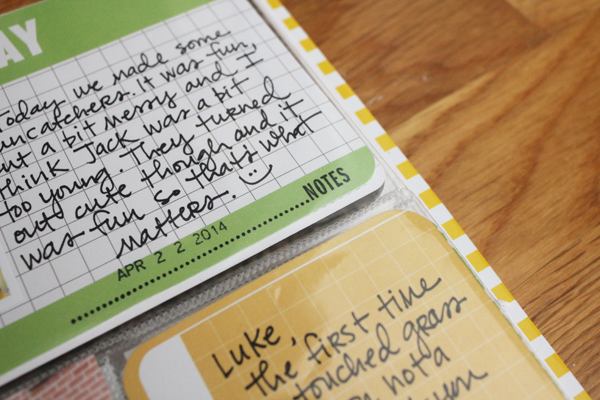 AY
Today we made some
uncatchers. It was fun,
ut a bit messy and I
think Jack was a bit
too young. They turned
out cute though and it
was fun so that's what
matters. :)
NOTES
APR 2 2 2014
Luke,
the first time
touched grass
not a